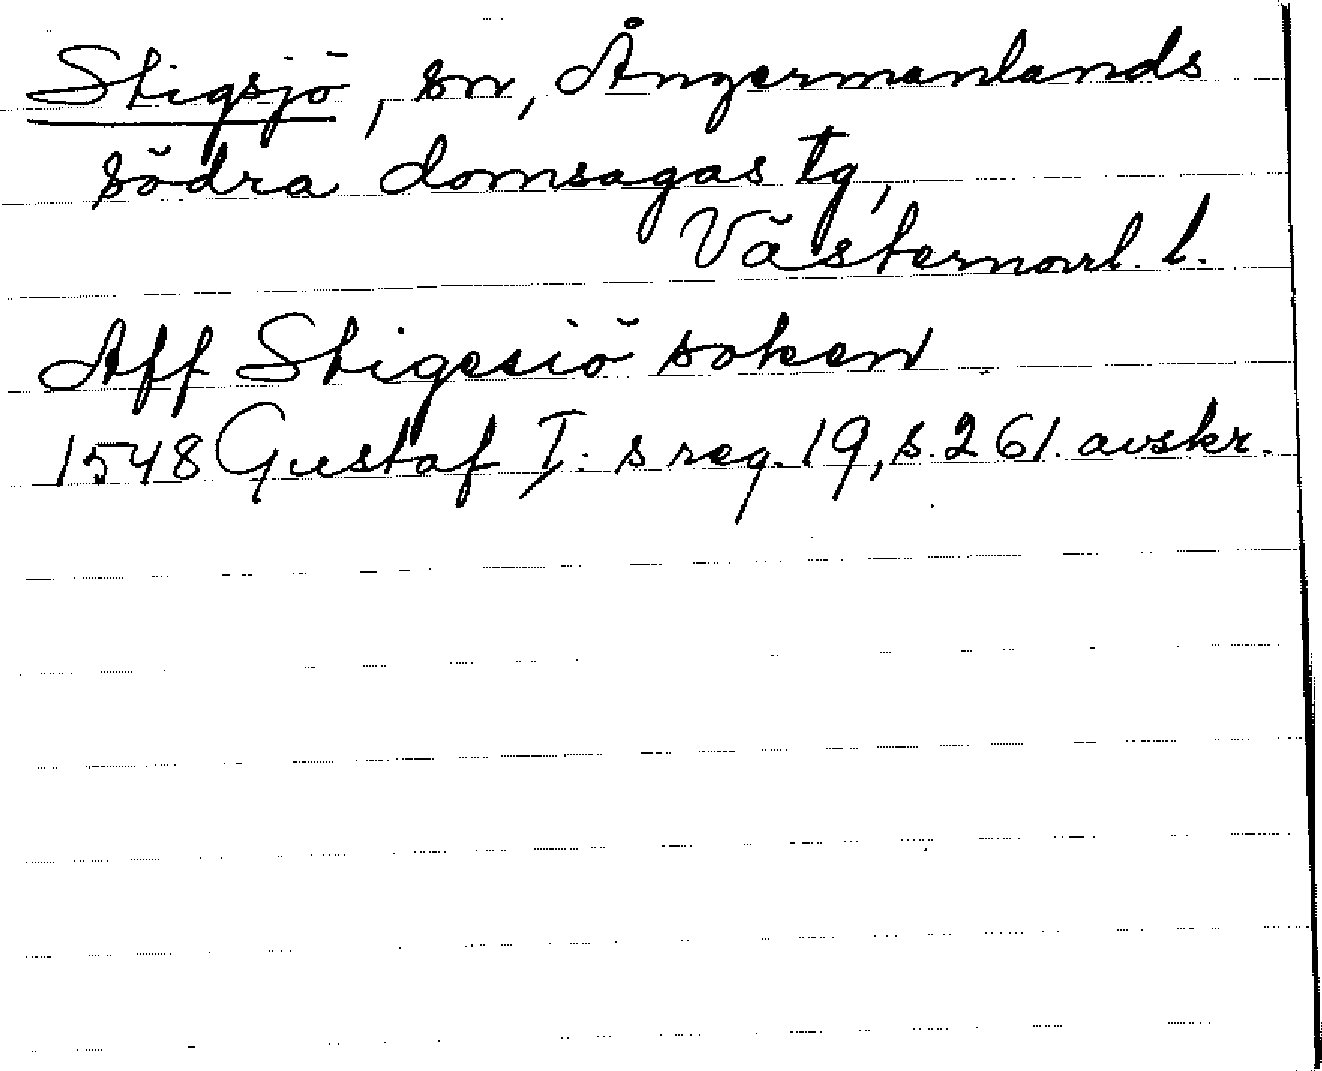 Stigsjö, sn, Ångermanlands
södra domsagas tg,
Västernorrl. l.
Aff Stigesiö soken
1548 Gustaf I:s reg. 19, s. 261. avskr.